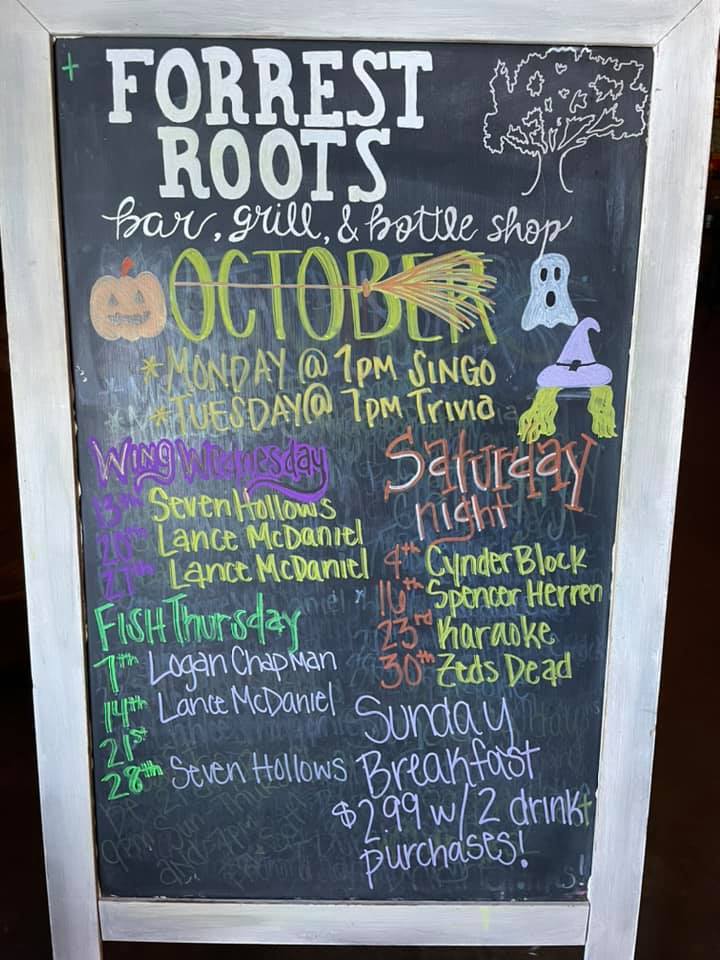 FORREST
ROOTS
bar, grill, & bottle shop
OCTOBER
*MONDAY @ 7PM SINGO
*TUESDAY @ 7PM Trivia
Wing Wednesday
13th Seven Hollows
20th Lance McDaniel
27th Lance McDaniel
FISH Thursday
7th Logan Chapman
14th Lance McDaniel
21st
28th Seven Hollows
Saturday
night
9th Cynder Block
16th Spencer Herren
23rd Karaoke
30th Zeds Dead
Sunday
Breakfast
$2.99 w/ 2 drink
purchases!